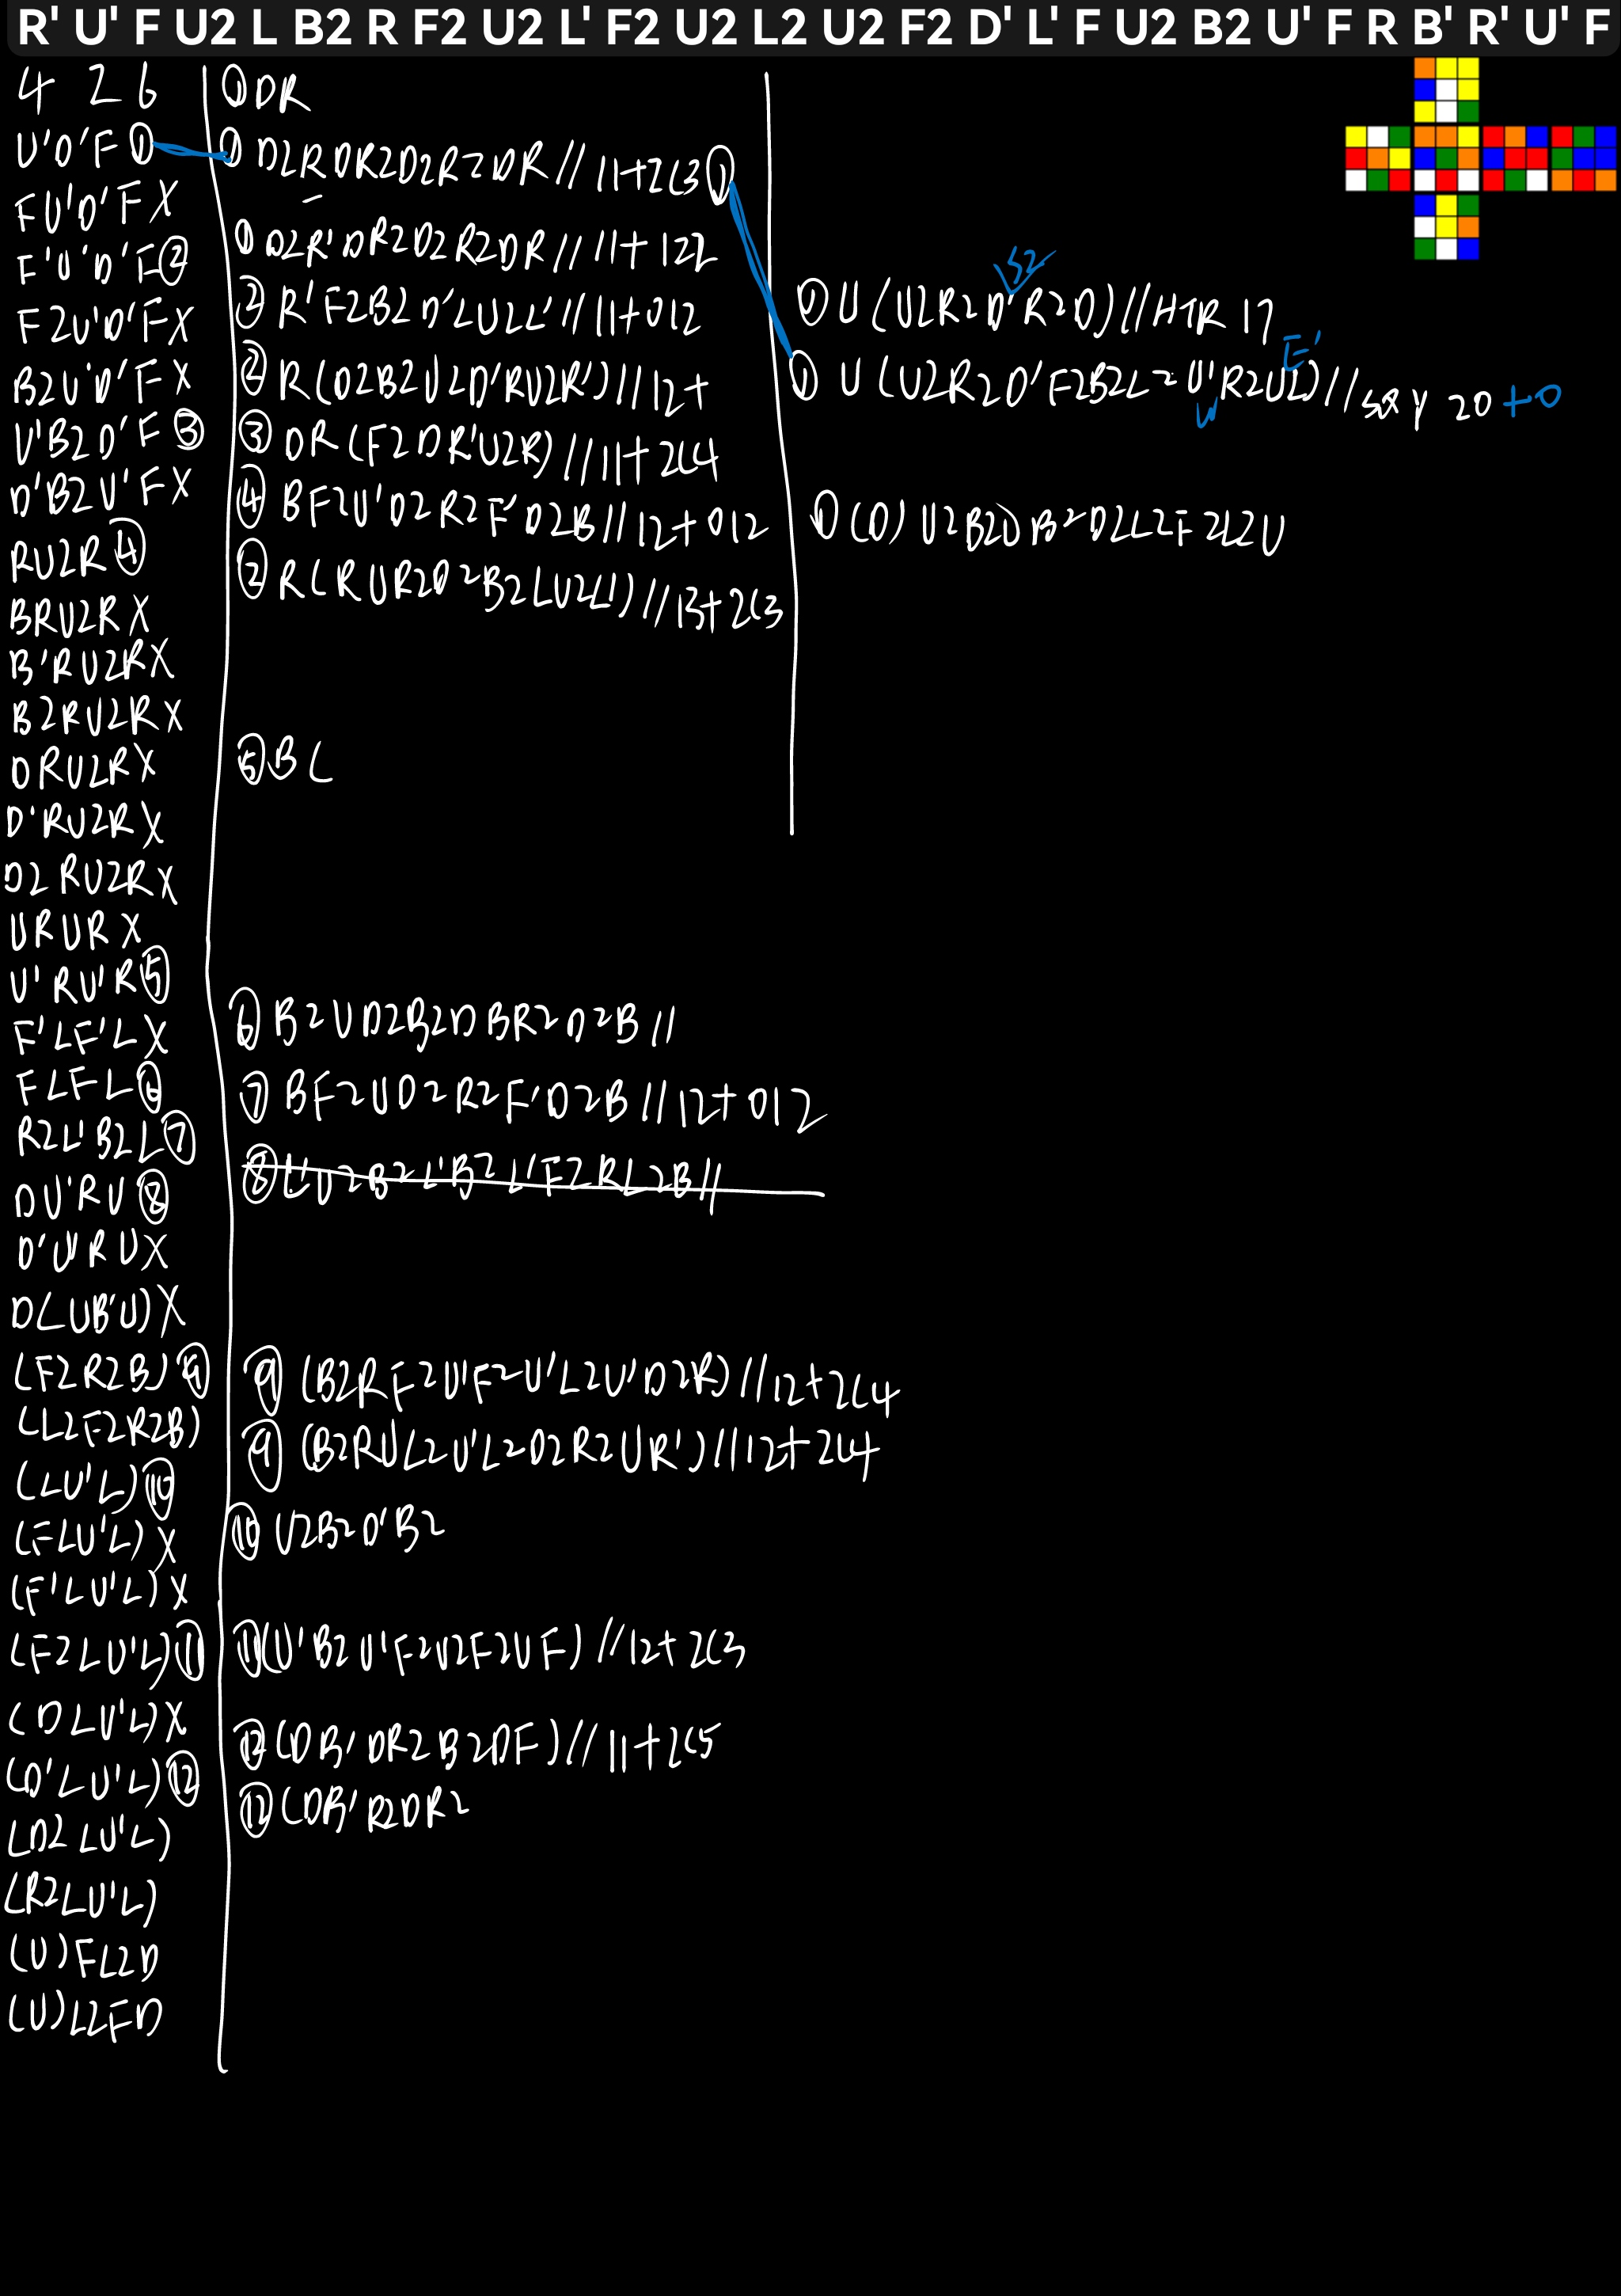 R' U' F U2 L B2 R F2 U2 L' F2 U2 L2 U2 F2 D' L' F U2 B2 U' F R B' R' U' F
4 2 6
U'D'F①
FU'D'F X
F'U'D'F②
F2U'D'F X
B2U'D'F X
U'B2D'F③
D'B2U'F X
RU2R④
BRU2R X
B'RU2R X
B2RU2R X
DRU2R X
D'RU2R X
D2RU2R X
URUR X
U'RU'R⑤
F'LF'L X
FLFL⑥
R2L'B2L⑦
DU'RU⑧
D'U'RU X
D(UB'U) X
(F2R2B)⑨
(L2F2R2B)
(LU'L)⑩
(FLU'L) X
(F'LU'L) X
(F2LU'L)⑪
(DLU'L) X
(D'LU'L)⑫
(D2LU'L)
(R2LU'L)
(U)FL2D
(U)L2FD
①DR
①D2RDR2D2R2DR//11+2C3①
①D2R'DR2D2R2DR//11+122
②R'F2B2D'LU2L'//11+012
②R(D2B2U2D'RU2R')//12+
③DR(F2DR'U2R)//11+2C4
④BF2U'D2R2F'D2B//12+012
②R(RUR2D2B2LU2L')//13+2C3
⑤B(
⑥B2UD2B2DBR2D2B//
⑦BF2UD2R2F'D2B//12+012
⑨(B2RF2U'F2U'L2U'D2R)//12+2C4
⑨(B2RUL2U'L2D2R2UR')//12+2C4
⑩U2B2D'B2
⑪(U'B2U'F2U2F2UF)//12+2C3
⑫(DB'DR2B2DF)//11+2C5
⑫(DB'R2DR2
S2
①U(U2R2D'R2D)//HTR 17
E'
①U(U2R2D'F2B2L2U'R2U2)//say 20+0
①(D)U2B2DB2D2L2F2L2U